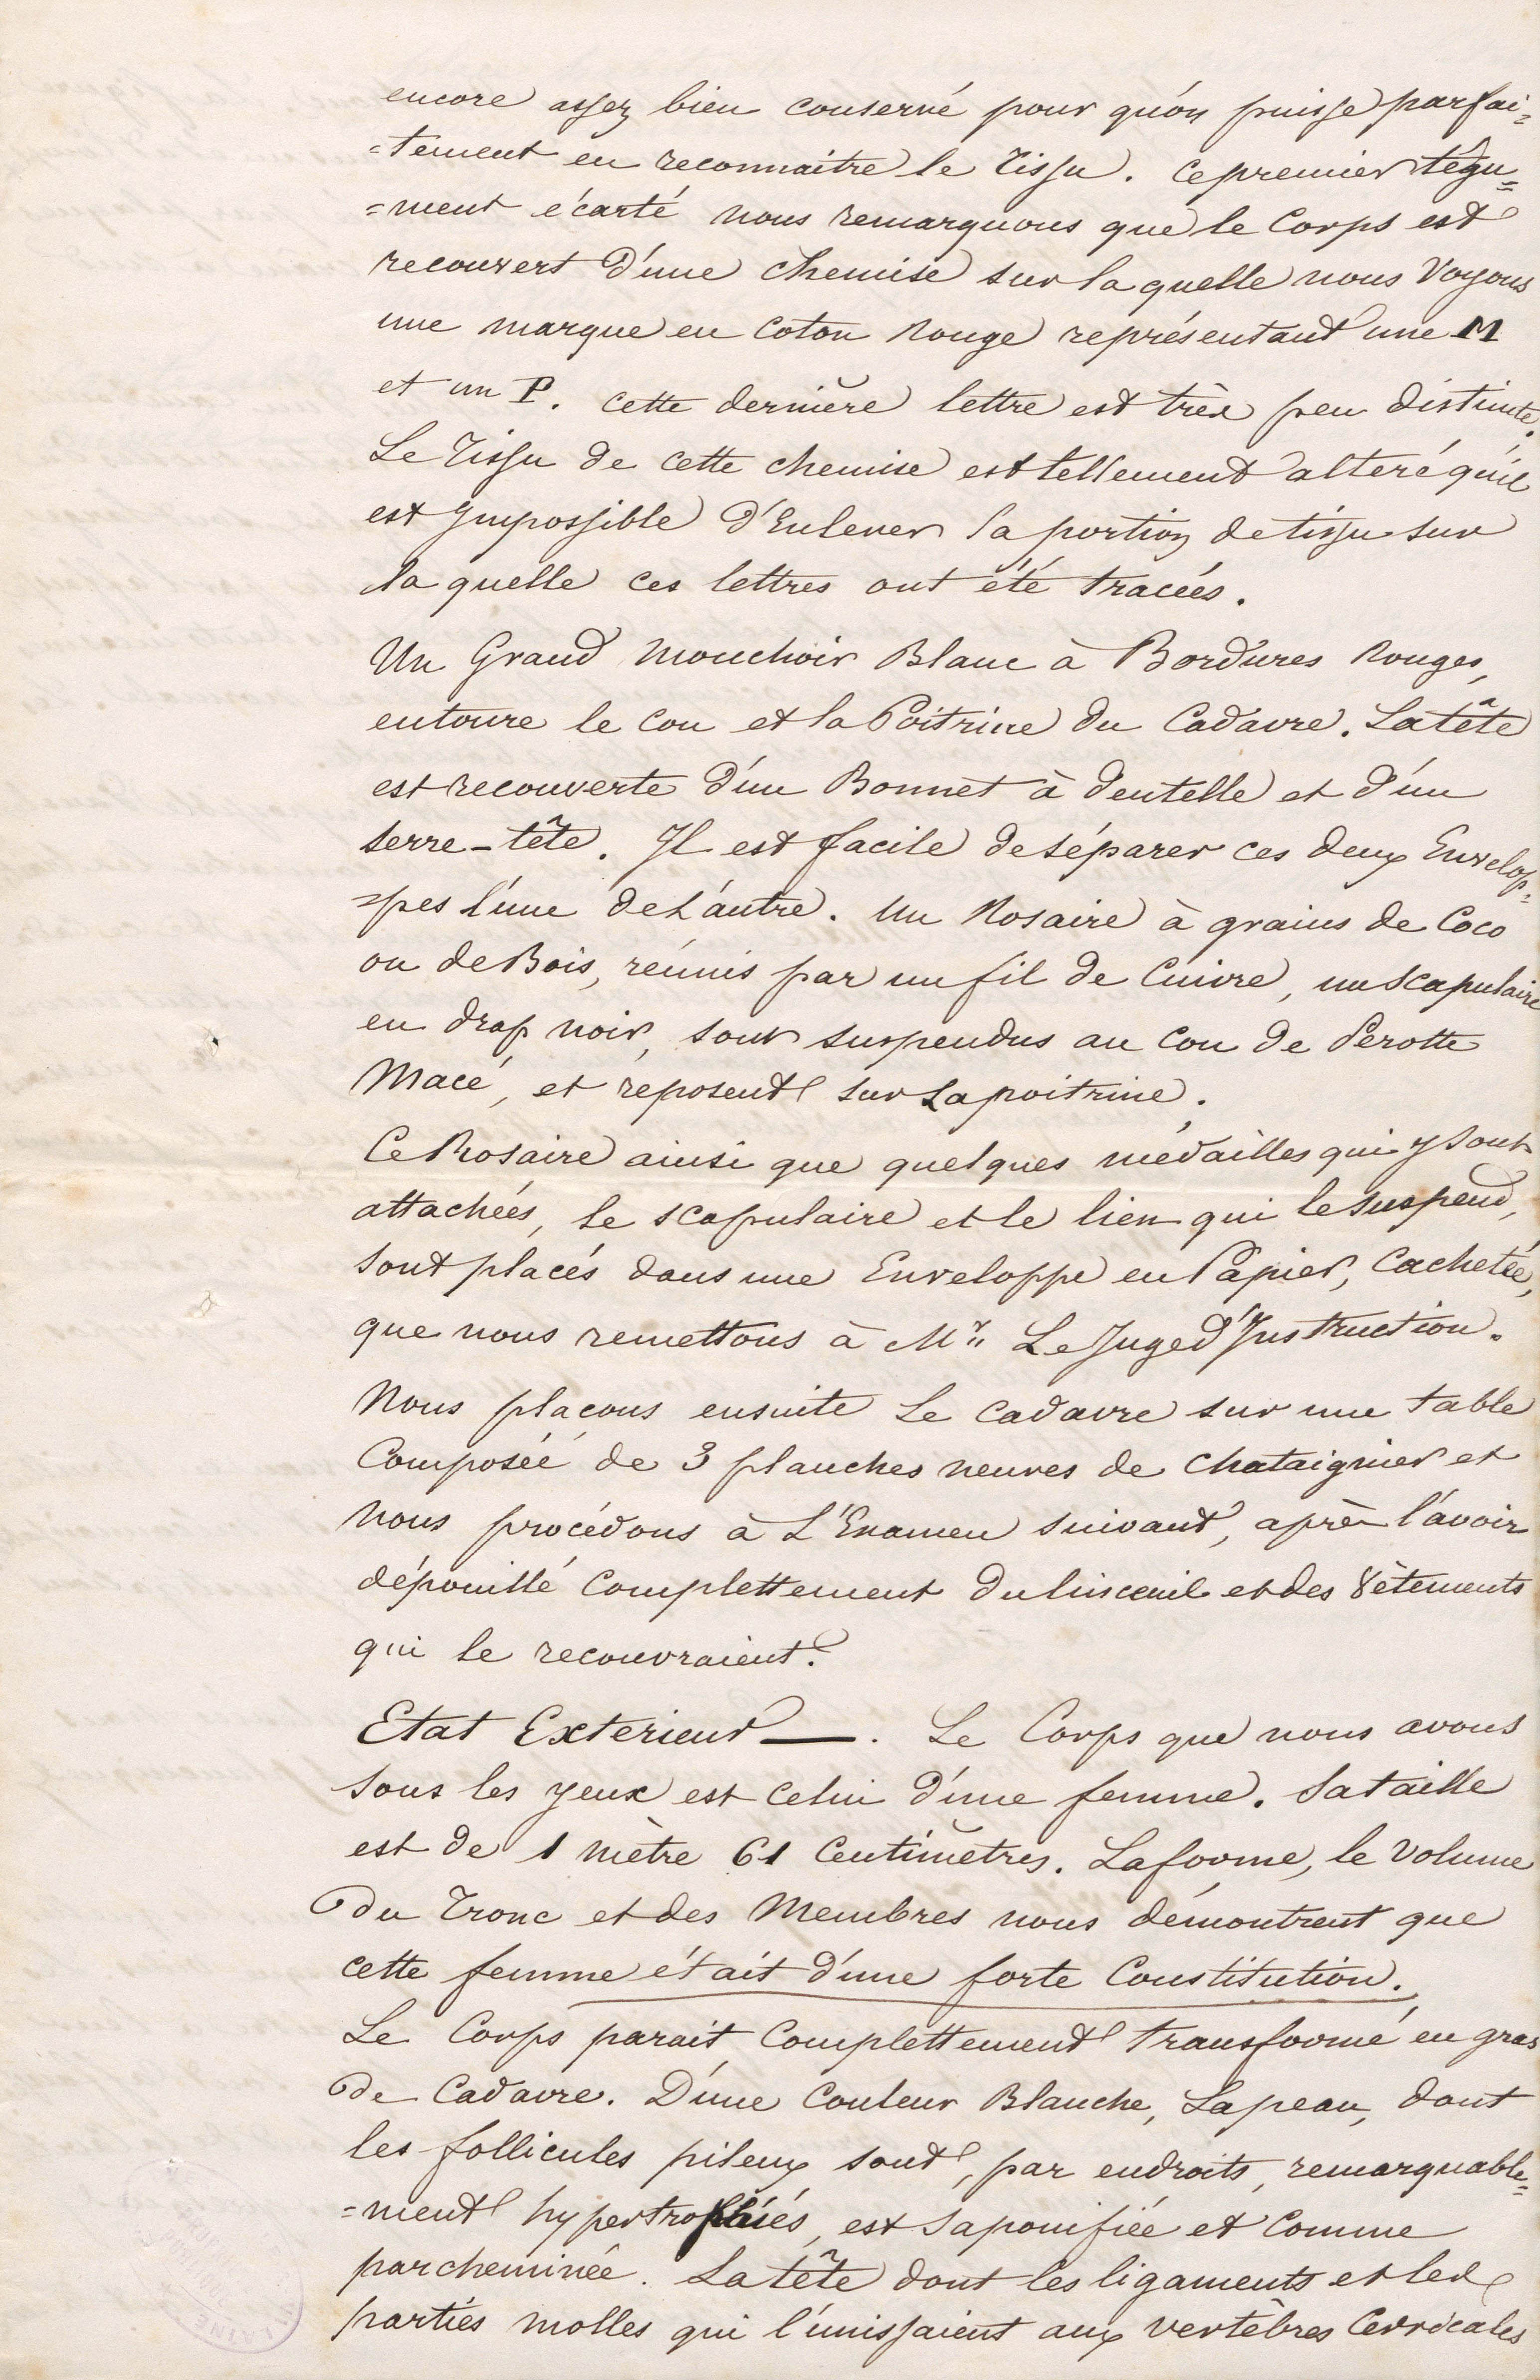 encore assez bien conservé pour qu'on puisse parfai=
=tement en reconnaitre le tissu. Ce premier tégu=
=ment écarté nous remarquons que le Corps est
recouvert d'une chemise sur la quelle nous Voyons
une marque en Coton Rouge représentant une M
et un P. cette dernière lettre est très peu distincte.
Le Tissu de cette chemise est tellement alteré qu'il
est Impossible d'Enlever la portion de tissu sur
la quelle ces lettres ont été tracées.
Un Grand Mouchoir Blanc à Bordures Rouges,
entoure le Cou et la Poitrine du Cadavre. La tête
est recouverte d'un Bonnet à dentelle et d'un
serre-tête. Il est facile de séparer ces deux Envelop=
=pes l'une de L'autre. Un Rosaire à grains de Coco
ou de Bois, réunis par un fil de Cuivre, un Scapulaire
en drap noir, sont suspendus au Cou de Perotte
Macé, et reposent sur La poitrine.
Ce Rosaire ainsi que quelques médailles qui y sont
attachées, le scapulaire et le lien qui le suspend,
sont placés dans une Enveloppe en Papier, Cachetée,
que nous remettons à Mr Le Juge d'Instruction.
Nous plaçons ensuite Le Cadavre sur une table
Composée de 3 planches neuves de Chataignier et
Nous procédons à L'Examen suivant, après l'avoir
dépouillé Complettement du linceuil et des Vêtements
qui le recouvraient.
Etat Exterieur —. Le Corps que nous avons
sous les yeux est Celui d'une femme. Sa taille
est de 1 mètre 61 Centimètres. La forme, le Volume
du Tronc et des Membres nous démontrent que
cette femme était d'une forte Constitution.
Le Corps parait Complettement transformé en gras
de Cadavre. D'une Couleur Blanche, La peau, dont
les follicules pileux sont, par endroits, remarquable=
=ment hypertrophiés, est saponifiée et Comme
parcheminée. La tête dont les ligaments et les
parties molles qui l'unissaient aux vertèbres Cervicales